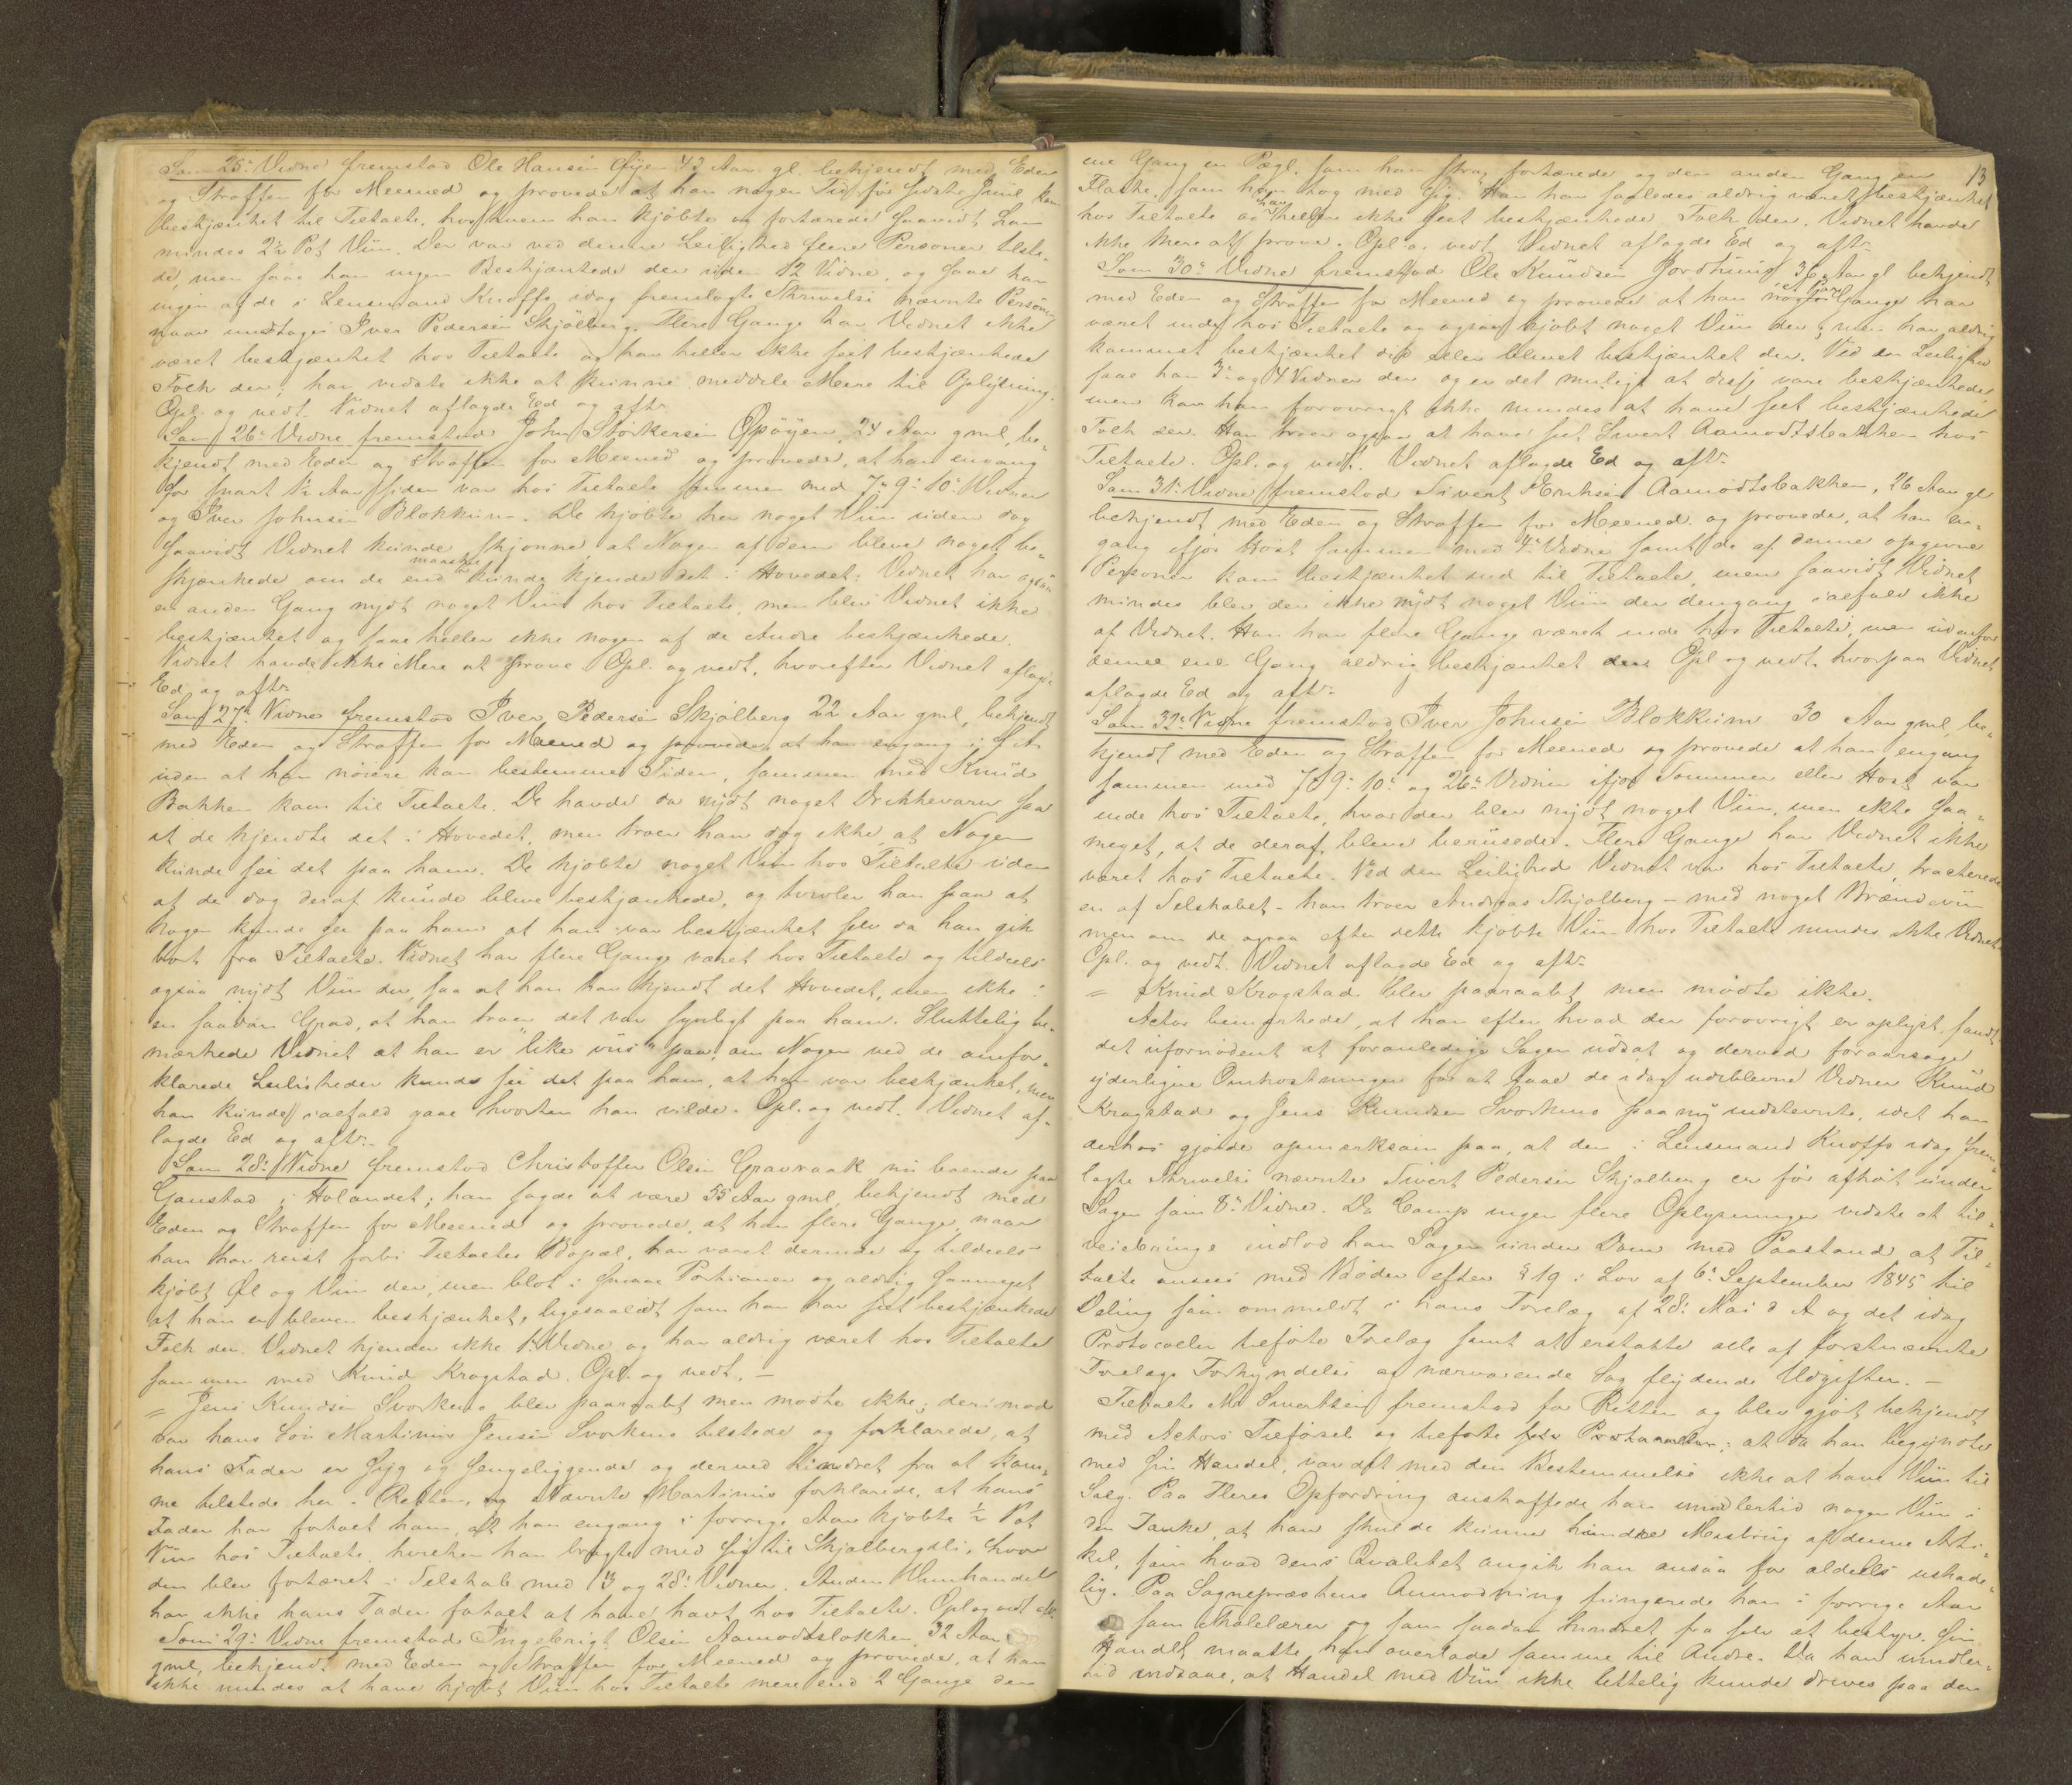 Som 25de Vidne fremstod Ole Hansen Øyen 43 Aar gl. bekjendt med Eden
og Straffen for Meened og provede at han nogen Tid før sidste Juul kom
beskjænket til Tiltalte, hos hvem han kjøbte og fortærede saavidt han
mindes 2 1/2 Pot Viin. Der var ved denne Leilighed flere Personer tilste-
de, men saae han ingen Beskjænkede der uden 12 Vidne, og saae han
ingen af de i Lensmand Knoffs idag fremlagte Skrivelse nævnte Personer
naar undtages Iver Pedersen Skjølberg. Flere Gange har Vidnet ikke
været beskjænket hos Tiltalte og har heller ikke seet beskjænkede
Folk der; han vidste ikke at kunne meddele Mere til Oplysning.
Opl. og vedt. Vidnet aflagde Ed og aftr.
Som 26de Vidne fremstod John Størkersen Opøyen, 24 Aar gml, be-
kjendt med Eden og Straffen for Meened og provede, at han engang
for snart 1/2 Aar siden var hos Tiltalte sammen med 7de 9de 10de Vidner
og Iver Johnsen Blokkum. De kjøbte her noget Viin uden dog
saavidt Vidnet kunde skjønne at Nogen af dem bleve noget be-
skjænkede om de end maaske kunde kjende det i Hovedet. Vidnet har ogsaa
en anden Gang nydt noget Viin hos Tiltalte, men blev Vidnet ikke
beskjænket og saae heller ikke nogen af de Andre beskjænkede.
Vidnet havde ikke Mere at prove. Opl. og vedt, hvorefter Vidnet aflagde
Ed og aftr.
Som 27de Vidne fremstod Iver Pedersen Skjølberg 22 Aar gml, bekjendt
med Eden og Straffen for Meened og provede, at han engang i
uden at han nøiere kan bestemme Tiden, sammen med Knud
Bakken kom til Tiltalte. De havde da nydt noget Drikkevarer saa
at de kjendte det i Hovedet, men troer han dog ikke at Nogen
kunde see det paa ham. De kjøbte noget Viin hos Tiltalte uden
at de dog deraf kunde blive beskjænkede, og tvivler han paa at
Nogen kunde see paa ham at han var beskjænket selv da han gik
bort fra Tiltalte. Vidnet har flere Gange været hos Tiltalte og tildeels
ogsaa nydt Viin der, saa at han har kjendt det Hovedet, men ikke i
en saadan Grad, at han troer det var synligt paa ham. Sluttelig be-
mærkede Vidnet at han er "like viis" paa, om Nogen ved de omfor-
klarede Leiligheder kunde see det paa ham, at han var beskjænket, men
han kunde ialfald gaae hvorhen han vilde. Opl. og vedt. Vidnet af-
lagde Ed og aftr.
Som 28de Vidne fremstod Christoffer Olsen Gravraak nu boende paa
Gaustad i Hølandet; han sagde at være 55 Aar gml, bekjendt med
Eden og Straffen for Meened og provede, at han flere Gange, naar
han har reist forbi Tiltaltes Bopæl, har været derinde og tildeels
kjøbt Øl og Viin der, men blot i smaae Portioner og aldrig saameget
at han er bleven beskjænket, ligesaalidt som han har seet beskjænkede
Folk der. Vidnet kjender ikke 1ste Vidne og har aldrig været hos Tiltalte
sammen med Knud Krogstad. Opl. og vedt. —
= Jens Knudsen Svorkmo blev paaraabt men mødte ikke; derimod
var hans Søn Martinus Jensen Svorkmo tilstede og forklarede, at
hans Fader er syg og sengeliggende og derved hindret fra at kom-
me tilstede her i Retten, og Nævnte Martinus forklarede, at hans
Fader har fortalt ham, at han engang i forrige Aar kjøbte 1/2 Pot
Viin hos Tiltalte, hvilken han bragte med sig til Skjølbergsli, hvor
den blev fortæret i Selskab med 13 og 28de Vidner. Anden Viinhandel
har ikke hans Fader fortalt at have havt hos Tiltalte. Opl og vedt aftr.
Som 29de Vidne fremstod Ingebrigt Olsen Aamodtsløkken, 32 Aar
gml, bekjendt med Eden og Straffen for Meened og provede, at han
ikke mindes at have kjøbt Viin hos Tiltalte mere end 2 Gange den
13
ene Gang en Pægl, som han strax fortærede og den anden Gang en
Flaske, som han tog med sig. Han har saaledes aldrig været beskjænket
hos Tiltalte og har heller ikke seet beskjænkede Folk der. Vidnet havde
ikke Mere at prove. Opl. og vedt. Vidnet aflagde Ed og aftr.
Som 30te Vidne fremstod Ole Knudsen Jordhuus 36 Aar gl bekjendt
med Eden og Straffen for Meened og provede at han et Par Gange har
været inde hos Tiltalte og ogsaa kjøbt noget Viin der; men han aldrig
kommet beskjænket did eller blevet beskjænket der. Ved en Leilighed
saae han 3de og 4 Vidner der og er det muligt at disse vare beskjænkede,
men kan han forøvrigt ikke mindes at have seet beskjænkede
Folk der. Han troer ogsaa at have seet Sivert Aamodtsbakken hos
Tiltalte. Opl. og vedt. Vidnet aflagde Ed og aftr.
Som 31te Vidne fremstod Sivert Eriksen Aamodtsbakken, 26 Aar gl
bekjendt med Eden og Straffen for Meened og provede, at han en-
gang ifjor Høst sammen med 4de Vidne samt de af denne opgivne
Personer kom beskjænket ind til Tiltalte, men saavidt Vidnet
mindes blev der ikke nydt noget Viin der dengang ialfald ikke
af Vidnet. Han har flere Gange været inde hos Tiltalte, men udenfor
denne ene Gang aldrig beskjænket der. Opl og vedt. hvorpaa Vidnet
aflagde Ed og aftr.
Som 32te Vidne fremstod Iver Johnsen Blokkum 30 Aar gml, be-
kjendt med Eden og Straffen for Meened og provede at han engang
sammen med 7de 9de 10de og 26de Vidner ifjor Sommer eller Høst var
inde hos Tiltalte, hvor der blev nydt noget Viin, men ikke saa-
meget, at de deraf bleve berusede. Flere Gange har Vidnet ikke
været hos Tiltalte. Ved den Leilighed Vidnet var hos Tiltalte, tracterede
en af Selskabet – han troer Andreas Skjølberg – med noget Brændeviin
men om de ogsaa efter dette kjøbte Viin hos Tiltalte mindes ikke Vidnet
Opl. og vedt. Vidnet aflagde Ed og aftr.
= Knud Krogstad blev paaraabt men mødte ikke.
Actor bemærkede, at han efter hvad der forøvrigt er oplyst, fandt
det ufornødent at foranledige Sagen udsat og derved foraarsage
yderligere Omkostninger for at faae de idag udeblevne Vidner Knud
Krogstad og Jens Knudsen Svorkmo paa ny indstevnte, idet han
derhos gjorde opmærksom paa, at den i Lensmand Knoffs idag frem-
lagte Skrivelse nævnte Sivert Pedersen Skjølberg er før afhørt under
Sagen som 8de Vidne. Da Comp ingen flere Oplysninger vidste at til-
veiebringe indlod han Sagen under Dom med Paastand at Til-
talte ansees med Bøder efter § 19 i Lov af 6te September 1845 til
Deling som ommeldt i hans Forelæg af 28de Mai d A og det idag
Protocollen tilførte Forelæg samt at erstatte alle af førstnævnte
Forelægs Forkyndelse og nærværende Sag flydende Udgifter. —
Tiltalte Siwertsen fremstod for Retten og blev gjort bekjendt
med Actors Tilførsel og tilførte Protocollen: at da han begyndte
med sin Handel, var det med den Bestemmelse ikke at have Viin til
Salg. Paa Fleres Opfordring anskaffede han imidlertid nogen Viin i
den Tanke, at han skulde kunne hindre Misbrug af denne Arti-
kel, som hvad dens Qvalitet angik han ansaa for aldeels uskade-
lig. Paa Sognepræstens Anmodning fungerede han i forrige Aar
som Skolelærer og som saadan hindret fra selv at bestyre sin
Handel maatte han overlade samme til Andre. Da han imidler-
tid indsaae, at Handel med Viin ikke lettelig kunde drives paa den